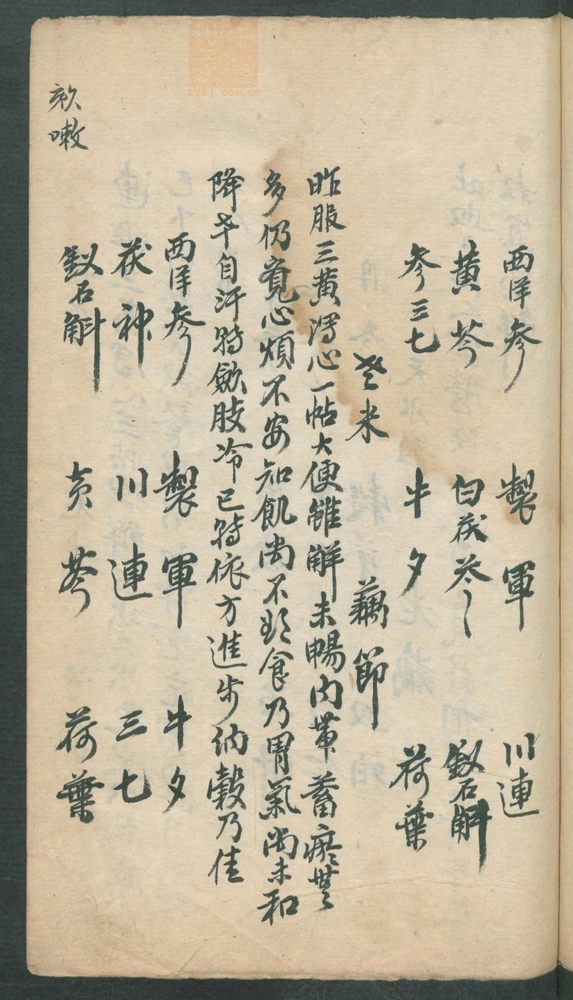 西洋參 製軍 川連
黃芩 白茯苓 釵石斛
參三七 牛夕 荷葉
米 藕節
昨服三黃瀉心一帖大便雖解未暢內蓄瘀
多仍覓心煩不安知飢尚不食乃胃氣尚未和
降幸自汗特歛肢冷已特依方進步納穀乃佳
西洋參 製軍 牛夕
茯神 川連 三七
釵石斛 黃芩 荷葉
欬嗽